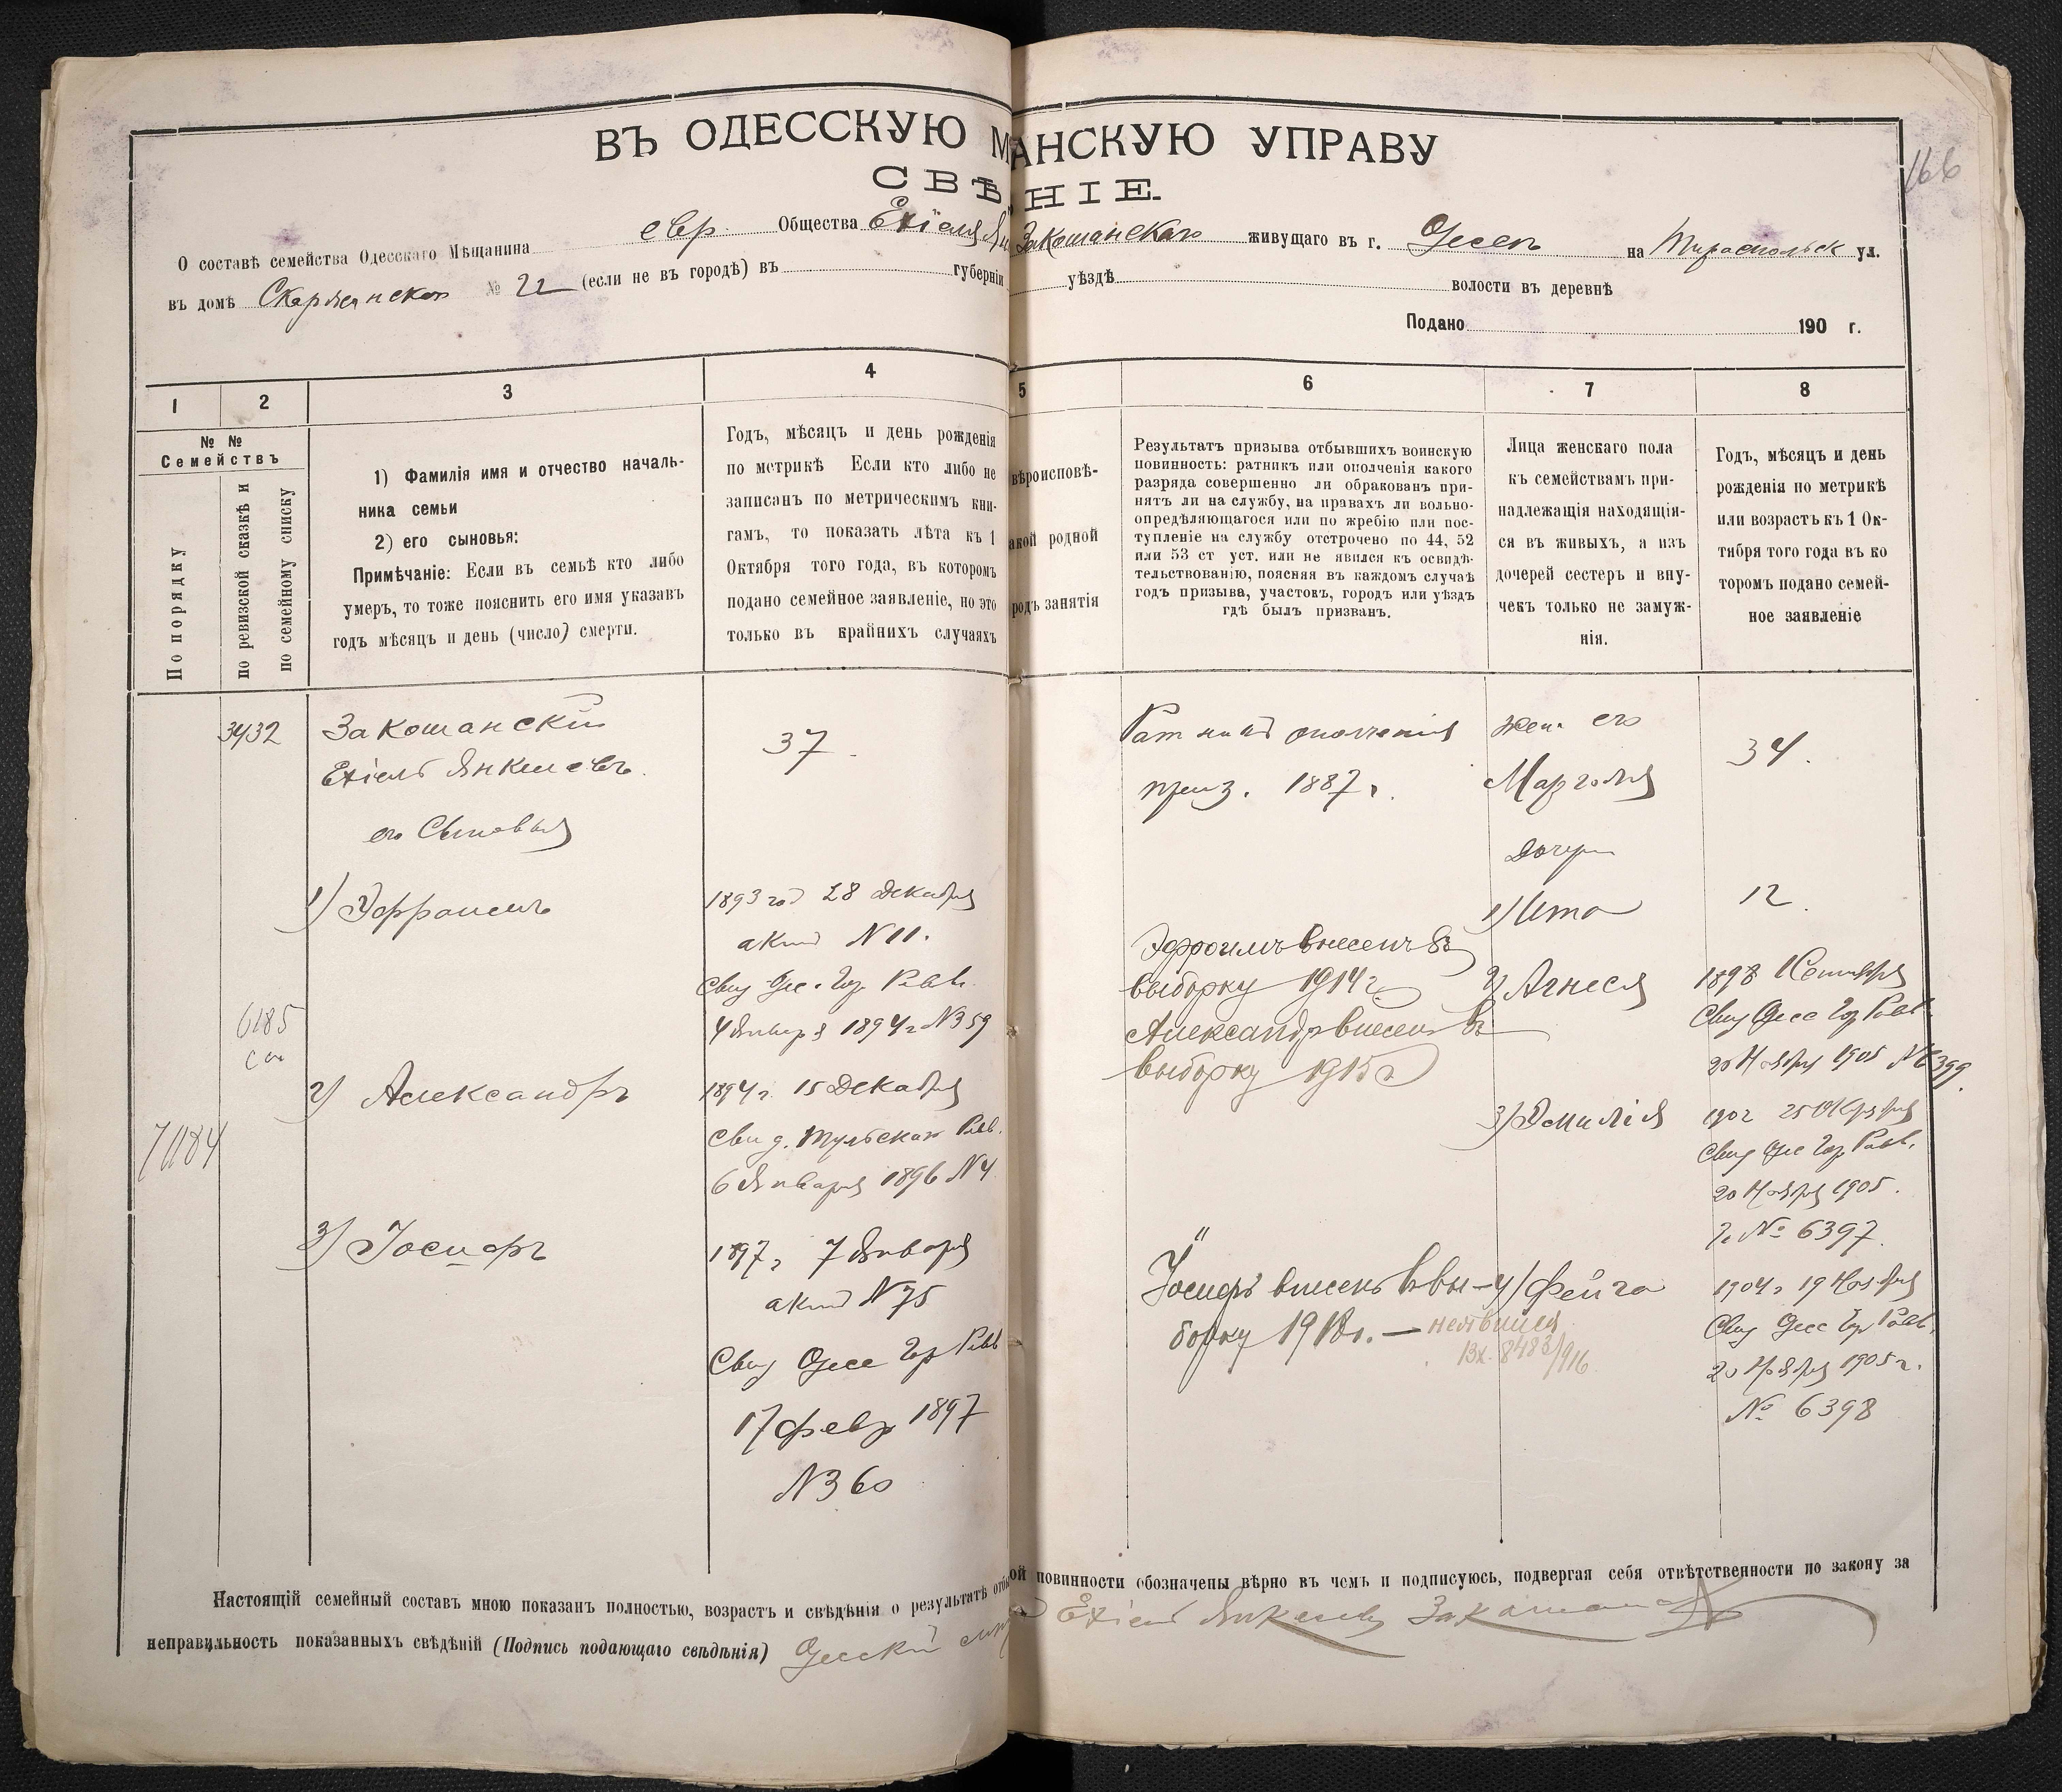 ВЪ ОДЕССКУЮ М
АНСКУЮ УПРАВУ
166
СВѢ
НІЕ.
О составѣ семейства Одесскаго Мѣщанина евр. Общества Ехіеля Ян
Закошанскаго живущаго въ г. Одессѣ на Тираспольск ул.
въ домѣ № 22 (если не въ городѣ) въ губерніи
уѣздѣ волости въ деревнѣ
Подано 190 г.
1 2 3 4
5 6 7 8
№ №
Семействъ
По порядку
по ревизской сказкѣ и
по семейному списку
1) Фамилія имя и отчество началь-
ника семьи
2) его сыновья:
Примѣчаніе: Если въ семьѣ кто либо
умеръ, то тоже пояснить его имя указавъ
годъ мѣсяцъ и день (число) смерти.
Годъ, мѣсяцъ и день рожденія
по метрикѣ Если кто либо не
записанъ по метрическимъ кни-
гамъ, то показать лѣта къ 1
Октября того года, въ которомъ
подано семейное заявленіе, но это
только въ крайнихъ случаяхъ
вѣроисповѣ-
акой родной
родъ занятія
Результатъ призыва отбывшихъ воинскую
повинность: ратникъ или ополченія какого
разряда совершенно ли обракованъ при-
нятъ ли на службу, на правахъ ли вольно-
опредѣляющагося или по жребію или пос-
тупленіе на службу отстрочено по 44, 52
или 53 ст уст. или не явился къ освидѣ-
тельствованію, поясняя въ каждомъ случаѣ
годъ призыва, участокъ, городъ или уѣздъ
гдѣ былъ призванъ.
Лица женскаго пола
къ семействамъ при-
надлежащія находящія-
ся въ живыхъ, а изъ
дочерей сестеръ и вну-
чекъ только не замуж-
нія.
Годъ, мѣсяцъ и день
рожденія по метрикѣ
или возрастъ къ 1 Ок-
тября того года въ ко
торомъ подано семей-
ное заявленіе
3432
Закошанскій
Ехіель Янкелевъ.
его Сыновья
1) Эфроимъ
6185
2) Александръ
71184
3) Іосифъ
37
1893 год 28 Декабря
актъ N 11.
Свид Одес. Гор. Равв.
4 Января 1894 г N359
1894 г. 15 Декабря
Свид. Тульскаго Равв.
6 Января 1896 N 4
1897 г 7 Января
актъ N 75
Свид Одесс Гор Равв
17 февр 1897
N 360
Ратникъ ополченія
приз. 1887 г.
Эфроимъ внесенъ въ
выборку 1914 г.
Александръ внесенъ въ
выборку 1915 г
Іосифъ внесенъ в вы-
борку 1918 г. — неявился
Вх. 8483/916
Жена его
Марголя
дочери
1) Ита
2) Агнеся
3) Эмилія
4) Фейга
34.
12.
1898 1 Сентября
Свид Одесс Гор Равв.
20 Ноября 1905 N 6399.
1902 25 Октября
Свид Одес Гор Равв.
20 Ноября 1905.
г. № 6397.
1904 г 19 Ноября
Свид Одесс Гор Равв.
20 Ноября 1905 г.
№ 6398
Настоящій семейный составъ мною показанъ полностью, возрастъ и свѣдѣнія о результатѣ отбы
ой повинности обозначены вѣрно въ чемъ и подписуюсь, подвергая себя отвѣтственности по закону за
неправильность показанныхъ свѣдѣній (Подпись подающаго свѣдѣнія) Одесскій
Ехіель Янкелевъ Закошанскій